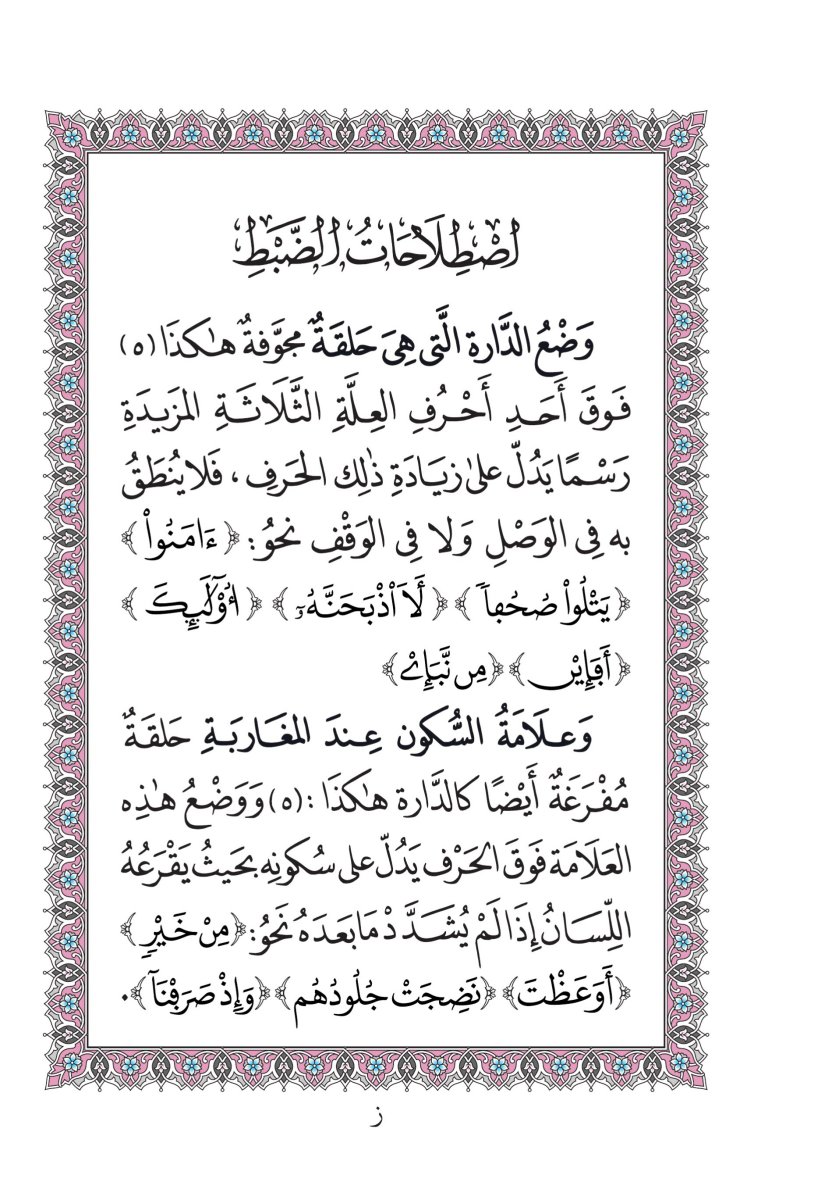 اصْطِلَاحَاتُ الضَّبْطِ
وَضْعُ الدَّارة الَّتي هِيَ حَلقَةٌ مجَوَّفةٌ هٰكذَا (ه)
فَوقَ أَحَدِ أَحْرُفِ العِلَّةِ الثَّلَاثَةِ المَزيدَةِ
رَسْمًا يَدُلّ علىٰ زيَادَةِ ذٰلِك الحَرَفِ ، فَلا يُنُطَقُ
به فِي الوَصْلِ وَلا فِي الوَقْفِ نحوُ: ﴿ ءَامَنُواْ﴾
﴿ يَتْلُواْ صُحُفاٗ ﴾ ﴿ لَأَاْذْبَحَنَّهُۥٓ ﴾ ﴿ أُوْلَٰٓئِكَ ﴾
﴿أَفَإِيْن ﴾ ﴿مِن نَّبَإِيْ﴾
وَعلَامَةُ السُّكون عِندَ المغَاربَةِ حَلقَةٌ
مُفْرَغَةٌ أَيْضًا كالدَّارة هٰكذَا :(ه) وَوَضْعُ هٰذِه
العَلَامَة فَوقَ الحَرْف يَدُلّ على سُكونِه بحَيثُ يَقْرَعُهُ
اللِّسَانُ إِذَا لَمْ يُشَدَّدْ مَا بعَدَهُ نَحَوُ: ﴿مِنْ خَيْرٖ ﴾
﴿أَوَعَظْتَ﴾ ﴿نَضِجَتْ جُلُودُهُم﴾ ﴿وَإِذْ صَرَفْنَآ﴾.
ز